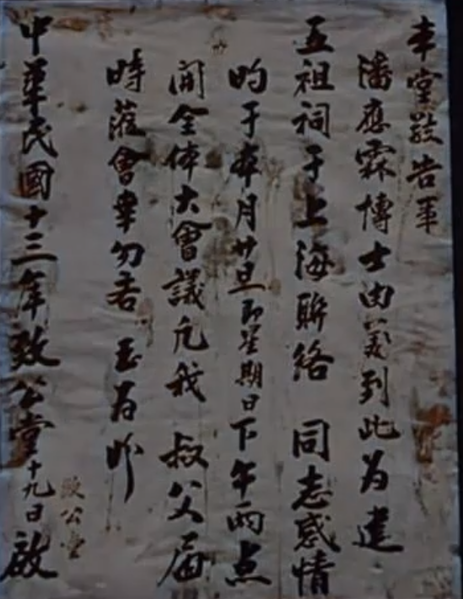 本堂敬告事
潘應霖博士由美到此为建
五祖祠于上海聯絡 同志感情
的于本月廿旦即星期日下午兩点
開全体大會議凡我 叔父届
時蒞會幸勿吝 玉为盼
中華民國十三年致公堂十九日啟
致公堂